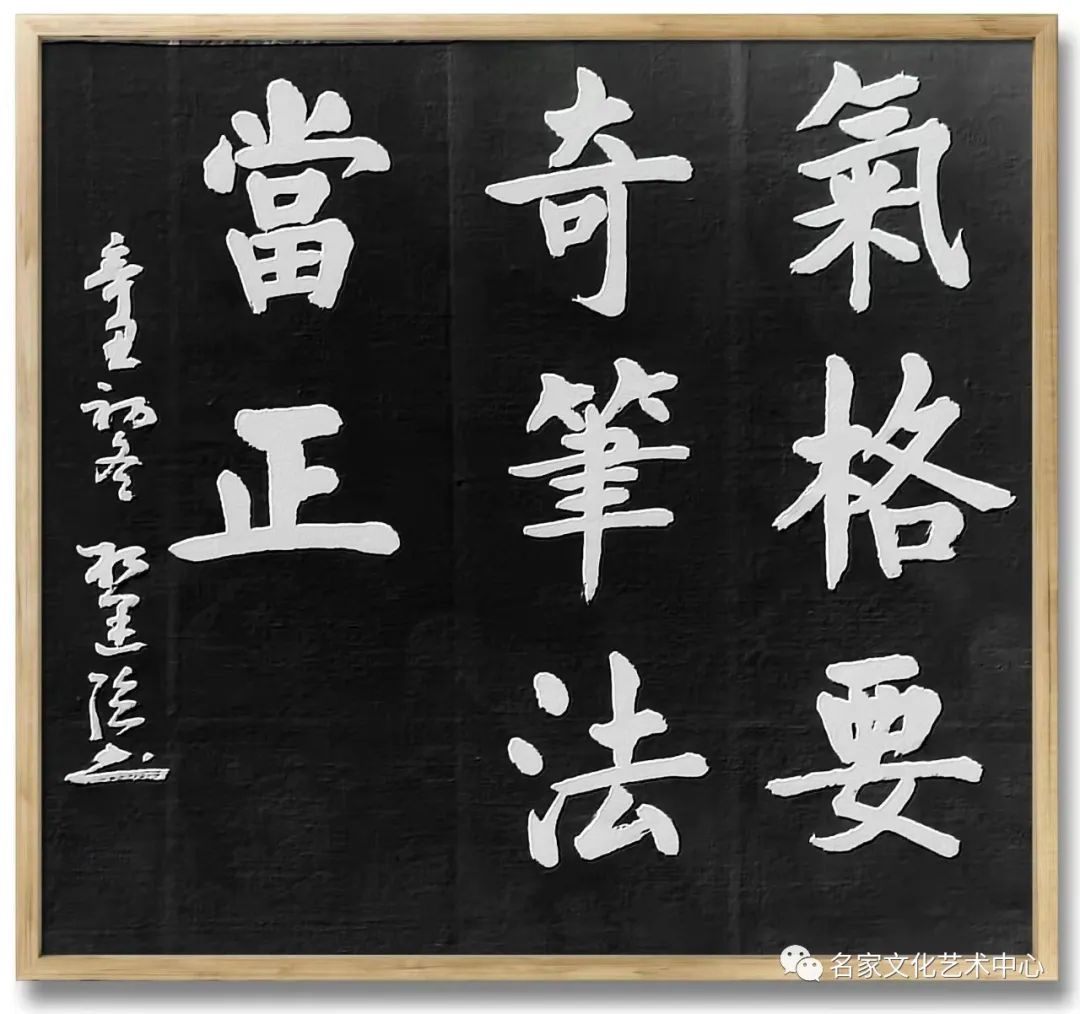 氣格要
奇筆法
當正
初冬
名家文化艺术中心